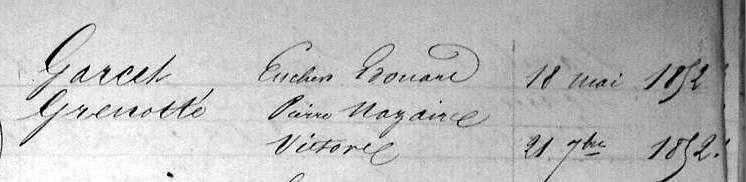 Garcet Eucher Edouard 18 mai 1852
Grenotté Pierre Nazaire
Victore 21 7bre 1852.